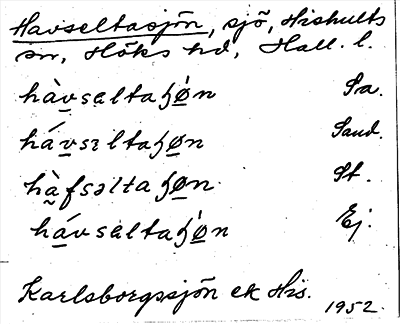 Havseltasjön, sjö, Hishults
sn, Höks hd, Hall. l.
hàvsəltaɧö́n Sa.
hávsəltaɧøn Sand.
hàfsəltaɧøn St.
hávsəltaɧǿn Ej.
Karlsborgssjön ek His.
1952.